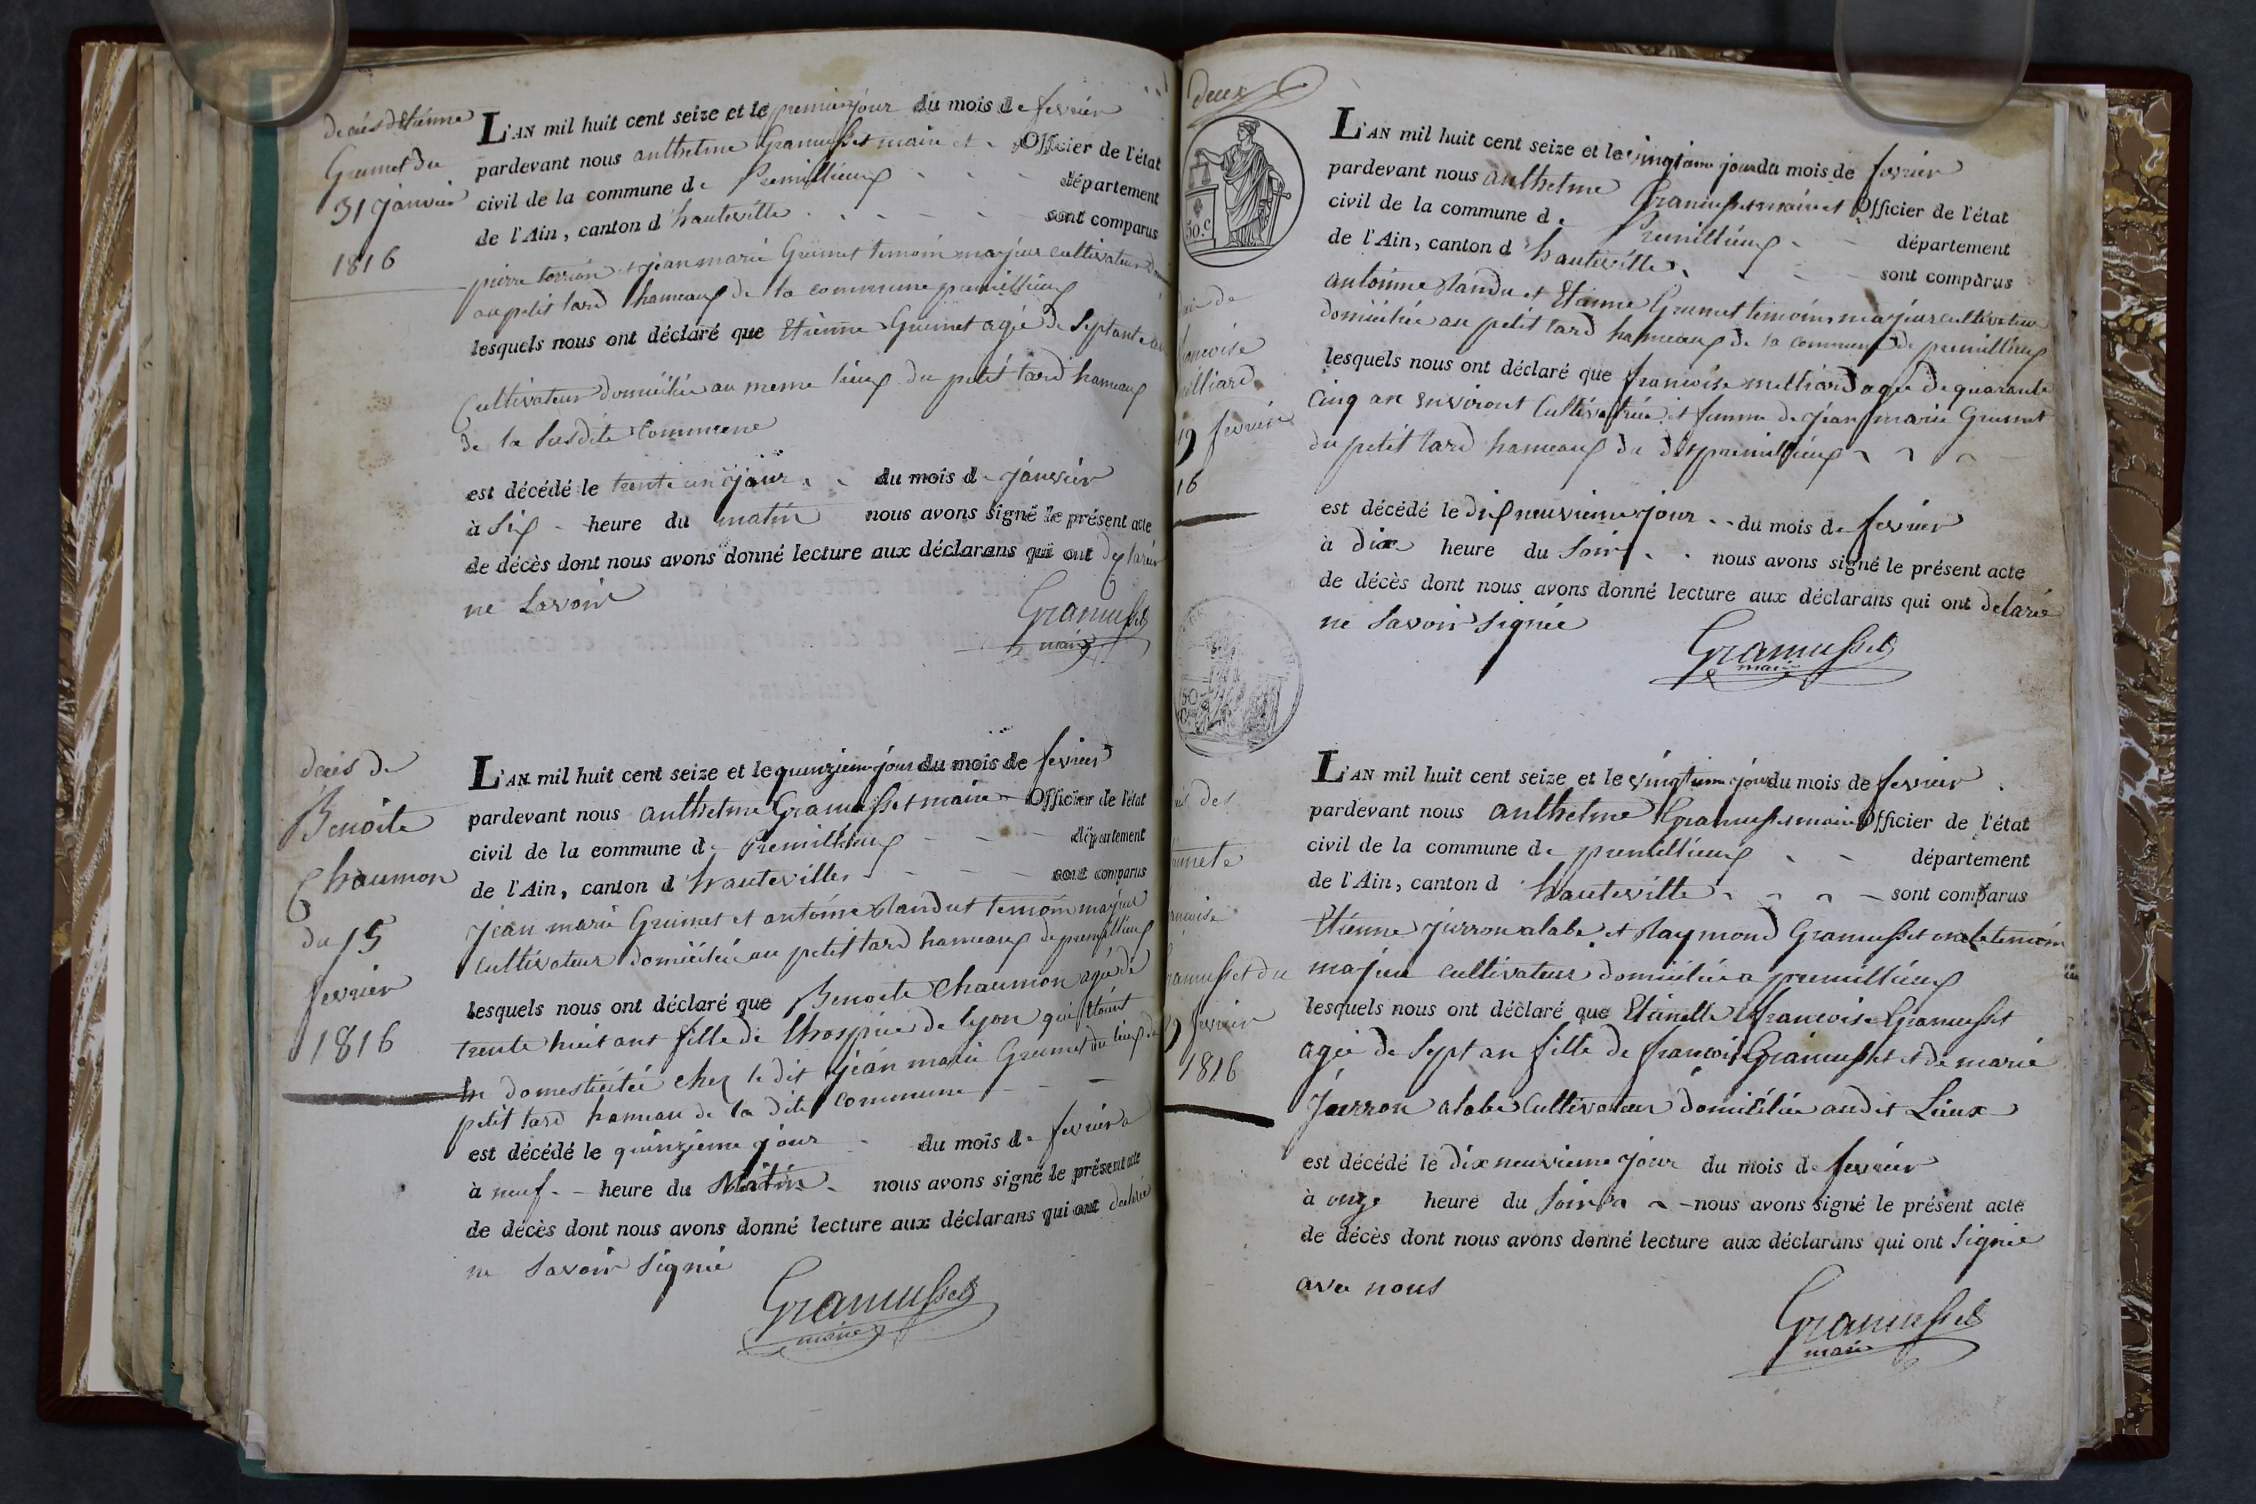 deces detienne
Grumet du
31 janvier
1816
L'AN mil huit cent seize et le premier jour du mois de fevrier
pardevant nous anthelme Gramusset maire et Officier de l'état
civil de la commune de Premillieux département
de l'Ain, canton d'hauteville sont comparus
pierre terrion et jean marie Grumet temoin majeur cultivateur
au petit tard hameaux de la commune premillieux
lesquels nous ont déclaré que Etienne Grumet agé de septante
Cultivateur domicilié au meme lieux du petit tard hameaux
de la susdite Commune
est décédé le trente un jour du mois de janvier
à six heure du matin nous avons signé le présent acte
de décès dont nous avons donné lecture aux déclarans qui ont
ne savoir
Gramusset
maire
deces de
Benoite
Chaumon
du 15
fevrier
1816
L'AN mil huit cent seize et le quinzieme jour du mois de fevrier
pardevant nous anthelme Gramusset maire Officier de l'état
civil de la commune de Premillieux département
de l'Ain, canton d'hauteville sont comparus
jean marie Grumet et antoine Landut temoin majeur
cultivateur domicilié au petit tard hameaux de premillieux
lesquels nous ont déclaré que Benoite Chaumon agé de
trente huit ant fille de lhospice de lyon qui
En domesticitée chez le dit jean marie Grumet au lieux de
petit tard hameau de la dite commune
est décédé le quinzieme jour du mois de fevrier
à neuf heure du Matin nous avons signé le présent acte
de décès dont nous avons donné lecture aux déclarans qui ont
ne savoir signié
Gramusset
maire
deux
50.C
francoise
milliard
19 fevrier
16
L'AN mil huit cent seize et le vingtieme jour du mois de fevrier
pardevant nous anthelme Gramusset maire et Officier de l'état
civil de la commune de Premillieux département
de l'Ain, canton d'hauteville sont comparus
antoinne Landu et Etienne Grumet temoins majeur cultivateur
domiciliée au petit tard hameaux de la commune de premillieux
lesquels nous ont déclaré que francoise milliard agée de quarante
Cinq an environt Cultivatrice et femme de jean marie Grumet
du petit tard hameaux du dit premillieux
est décédé le dix neuvieme jour du mois de fevrier
à dix heure du Soir nous avons signé le présent acte
de décès dont nous avons donné lecture aux déclarans qui ont delarée
ne savoir signiée
Gramusset
maire
1816
L'AN mil huit cent seize et le vingtieme jour du mois de fevrier
pardevant nous anthelme Gramusset maire Officier de l'état
civil de la commune de premillieux département
de l'Ain, canton d hauteville sont comparus
Etienne jurron alabe et Raymond Gramusset temoin
majeur cultivateur domiciliée a premillieux
lesquels nous ont déclaré que Etienette francoise Gramusset
agée de sept an fille de francois Gramusset et de marie
jurron alabe Cultivateur domiciliée audit Lieux
est décédé le dix neuvieme jour du mois de fevrier
à onze heure du soir nous avons signé le présent acte
de décès dont nous avons donné lecture aux déclarans qui ont signié
avec nous
Gramusset
maire